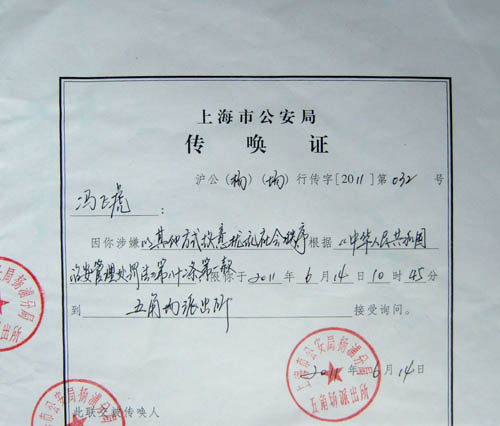 上海市公安局
传唤证
沪公（杨）（场）行传字[2011]第032号
冯正虎：
因你涉嫌以其他方式故意扰乱社会秩序根据《中华人民共和国
治安管理处罚法》第八十二条第一款限你于2011年6月14日10时45分
到五角场派出所接受询问。
2011年6月14日
此联交被传唤人
上海市公安局杨浦分局
五角场派出所
公安局杨浦分局
出所
上海市公安局杨浦分